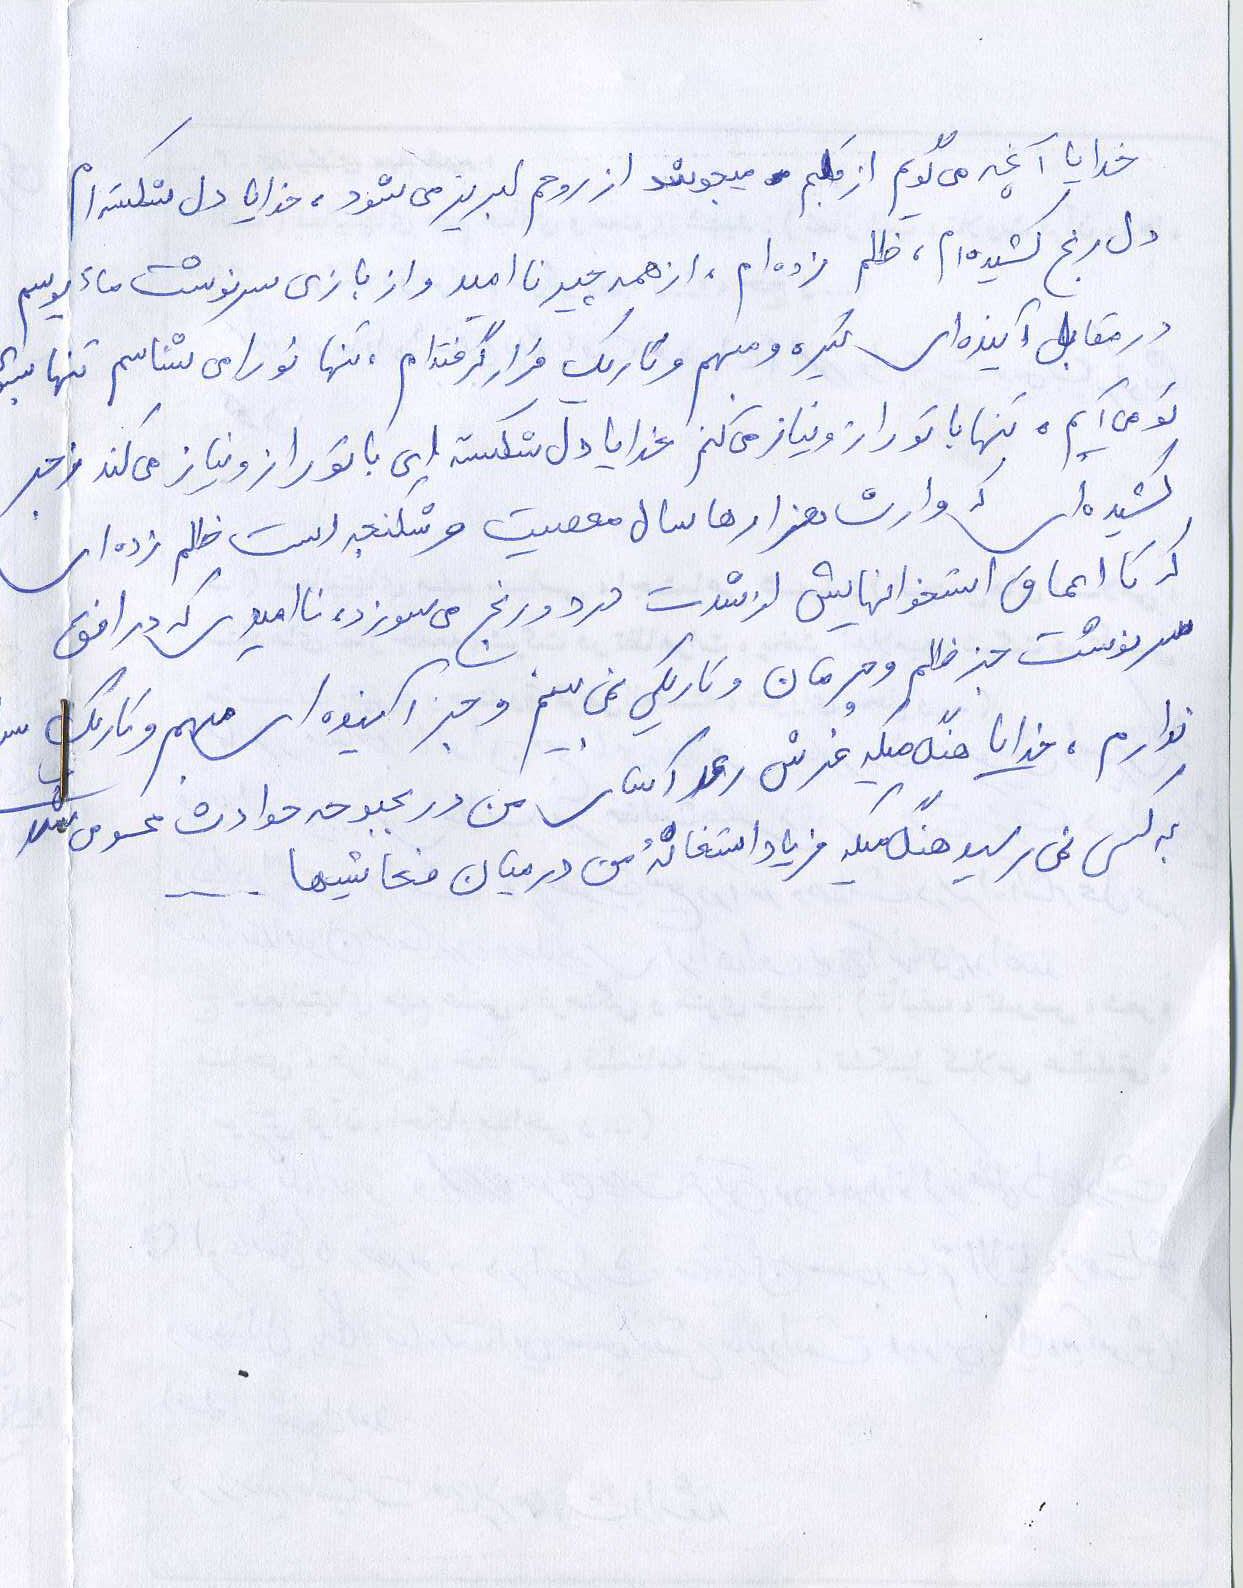 خدایا آنچه می‌گویم از قلبم میجوشد از روحم لبریز می‌شود، خدایا دل شکسته‌ام
دل رنج کشیده‌ام، ظلم زده‌ام، از همه چیز ناامید و از بازی سرنوشت مأیوسم
در مقابل آینده‌ای تیره و مبهم و تاریک قرار گرفته‌ام، تنها تو را می شناسم تنها بسوی
تو می‌آیم، تنها با تو راز و نیاز می‌کنم خدایا دل شکسته ای با تو راز و نیاز می کند زجر
کشیده‌ای که وارث هزارها سال معصیت و شکنجه است ظلم زده‌ای
که تا اعماق استخوانهایش از شدت درد و رنج می‌سوزد، ناامیدی که در افق
سرنوشت جز ظلم و حرمان و تاریکی نمی بینم و جز آینده‌ای مبهم و تاریک
ندارم، خدایا هنگامیکه غرش رعد آسای من در بحبوحه حوادث محو می شد
به کسی نمی رسید هنگامیکه فریاد استغاثهٔ من در میان فحاشیها ....